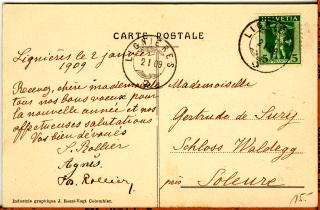 CARTE POSTALE
Lignières le 2 janvier
1909
Recevez, chère mademoiselle
tous nos bons voeux pour
la nouvelle année et nos
affectueuses salutations
Vos bien dévoués
Agnès.
Mademoiselle
Gertrude de Sury
Schloss Waldegg
près Soleure
LIGNIÈRES
2.I.09
HELVETIA
5
Industrie graphique J. Robert-Vogt Colombier.